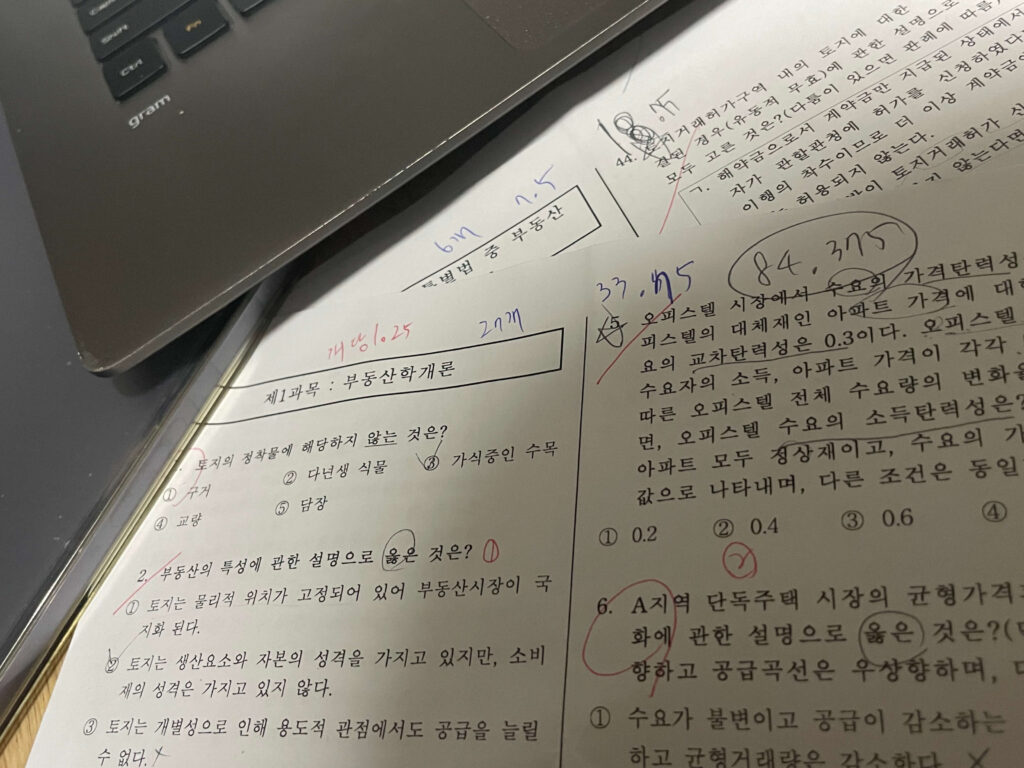 Shift
Fn
Ctrl
gram
특별법 중 부동산
6개 7.5
18.75
44.
거래허가구역 내의 토지에 대한
경우(유동적 무효)에 관한 설명으로
모두 고른 것은?(다툼이 있으면 판례에 따름)
ㄱ. 해약금으로서 계약금만 지급된 상태에서
자가 관할관청에 허가를 신청하였다
이행의 착수이므로 더 이상 계약금
허용되지 않는다.
토지거래허가
않는다면
개당 1.25
27개
33.75
84.375
제1과목 : 부동산학개론
토지의 정착물에 해당하지 않는 것은?
① 구거 ② 다년생 식물 ③ 가식중인 수목
④ 교량 ⑤ 담장
2. 부동산의 특성에 관한 설명으로 옳은 것은? ①
① 토지는 물리적 위치가 고정되어 있어 부동산시장이 국
지화 된다.
② 토지는 생산요소와 자본의 성격을 가지고 있지만, 소비
재의 성격은 가지고 있지 않다.
③ 토지는 개별성으로 인해 용도적 관점에서도 공급을 늘릴
수 없다. X
5. 오피스텔 시장에서 수요의 가격탄력성
피스텔의 대체재인 아파트 가격에 대한
요의 교차탄력성은 0.3이다. 오피스텔
수요자의 소득, 아파트 가격이 각각
따른 오피스텔 전체 수요량의 변화율
면, 오피스텔 수요의 소득탄력성은?
아파트 모두 정상재이고, 수요의 가
값으로 나타내며, 다른 조건은 동일
① 0.2 ② 0.4 ③ 0.6 ④
②
6. A지역 단독주택 시장의 균형가격
화에 관한 설명으로 옳은 것은?
향하고 공급곡선은 우상향하며,
① 수요가 불변이고 공급이 감소하는
하고 균형거래량은 감소한다. X